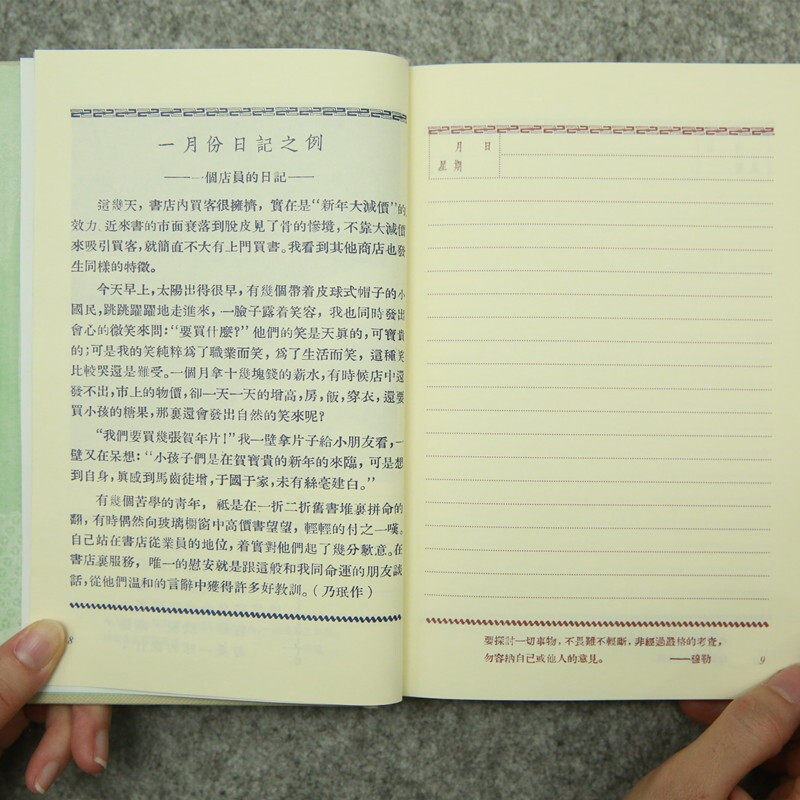 一月份日記之例
——一個店員的日記——
這幾天，書店內買客很擁擠，實在是“新年大減價”的
效力、近來書的市面衰落到脫皮見了骨的慘境，不靠大減價
來吸引買客，就簡直不大有上門買書。我看到其他商店也發
生同樣的特徵。
今天早上，太陽出得很早，有幾個帶着皮球式帽子的小
國民，跳跳躍躍地走進來，一臉子露着笑容，我也同時發出
會心的微笑來問：“要買什麼？”他們的笑是天眞的，可寶貴
的；可是我的笑純粹爲了職業而笑，爲了生活而笑，這種笑
比較哭還是難受。一個月拿十幾塊錢的薪水，有時候店中還
發不出，市上的物價，卻一天一天的增高，房，飯，穿衣，還要
買小孩的糖果，那裏還會發出自然的笑來呢？
“我們要買幾張賀年片！”我一壁拿片子給小朋友看，一
壁又在呆想：“小孩子們是在賀寶貴的新年的來臨，可是想
到自身，眞感到馬齒徒增，于國于家，未有絲毫建白。”
有幾個苦學的靑年，祇是在一折二折舊書堆裏拼命的
翻，有時偶然向玻璃櫥窗中高價書望望，輕輕的付之一嘆。
自己站在書店從業員的地位，着實對他們起了幾分歉意。在
書店裏服務，唯一的慰安就是跟這般和我同命運的朋友談
話，從他們温和的言辭中獲得許多好教訓。（乃珉作）
8
月 日
星期
要探討一切事物，不畏難不輕斷，非經過嚴格的考查，
勿容納自己或他人的意見。 ——穆勒
9